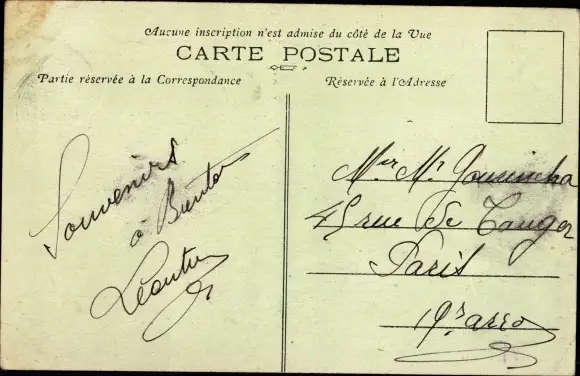 Aucune inscription n'est admise du côté de la Vue
CARTE POSTALE
Partie réservée à la Correspondance
Réservée à l'Adresse
Souvenirs
à
45 rue de Tanger
Paris
arro